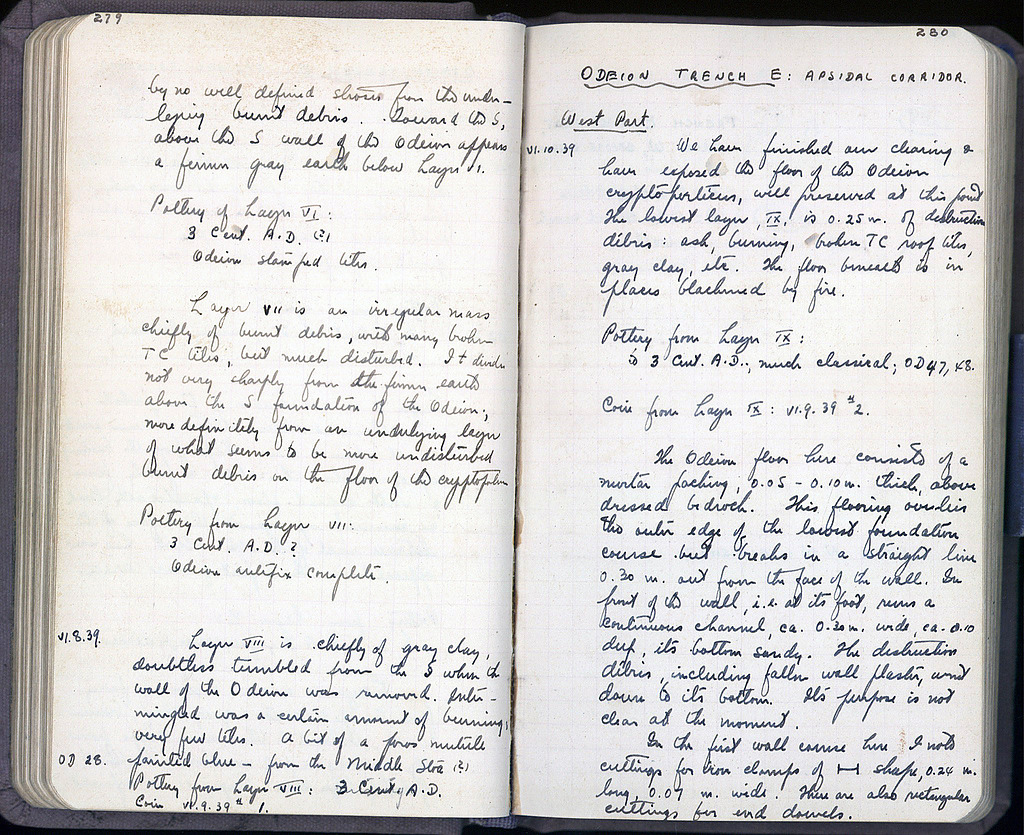 279
by no well defined strosis from the under-
lying burnt debris. Toward the S,
above the S wall of the Odeion appears
a firmer gray earth below Layer
Pottery of Layer VI:
3 Cent. A.D. (?)
Odeion stamped tiles.
Layer VII is an irregular mass
chiefly of burnt debris, with many broken
TC tiles, but much disturbed. It divides
not very sharply from the firmer earth
above the S foundation of the Odeion;
more definitely from an underlying layer
of what seems to be more undisturbed
burnt debris on the floor of the
Pottery from Layer VII:
3 Cent. A.D. ?
Odeion antefix complete.
VI.8.39.
Layer VIII is chiefly of gray clay,
doubtless tumbled from the S when the
wall of the Odeion was removed. Inter-
mingled was a certain amount of burning,
very few tiles. A bit of a poros mutule
OD 28. painted blue – from the Middle Stoa (?)
Pottery from Layer VIII: 3 Cent. A.D.
Coin VI.9.39 # 1.
280
ODEION TRENCH E: APSIDAL CORRIDOR.
West Part.
VI.10.39 We have finished our clearing &
have exposed the floor of the Odeion
cryptoporticus, well preserved at this point.
The lowest layer, IX, is 0.25 m. of destruction
débris: ash, burning, broken TC roof tiles,
gray clay, etc. The floor beneath is in
places blackened by fire.
Pottery from Layer IX:
to 3 Cent. A.D., much classical; OD 47, 48.
Coin from Layer IX: VI.9.39 # 2.
The Odeion floor here consists of a
mortar packing, 0.05 – 0.10 m. thick, above
dressed bedrock. This flooring overlies
the outer edge of the lowest foundation
course but breaks in a straight line
0.30 m. out from the face of the wall. In
front of the wall, i.e. at its foot, runs a
continuous channel, ca. 0.30 m. wide, ca. 0.10
deep, its bottom sandy. The destruction
débris, including fallen wall plaster, went
down to its bottom. Its purpose is not
clear at the moment.
In the first wall course here I note
cuttings for iron clamps of shape, 0.24 m.
long, 0.07 m. wide. There are also rectangular
cuttings for end dowels.